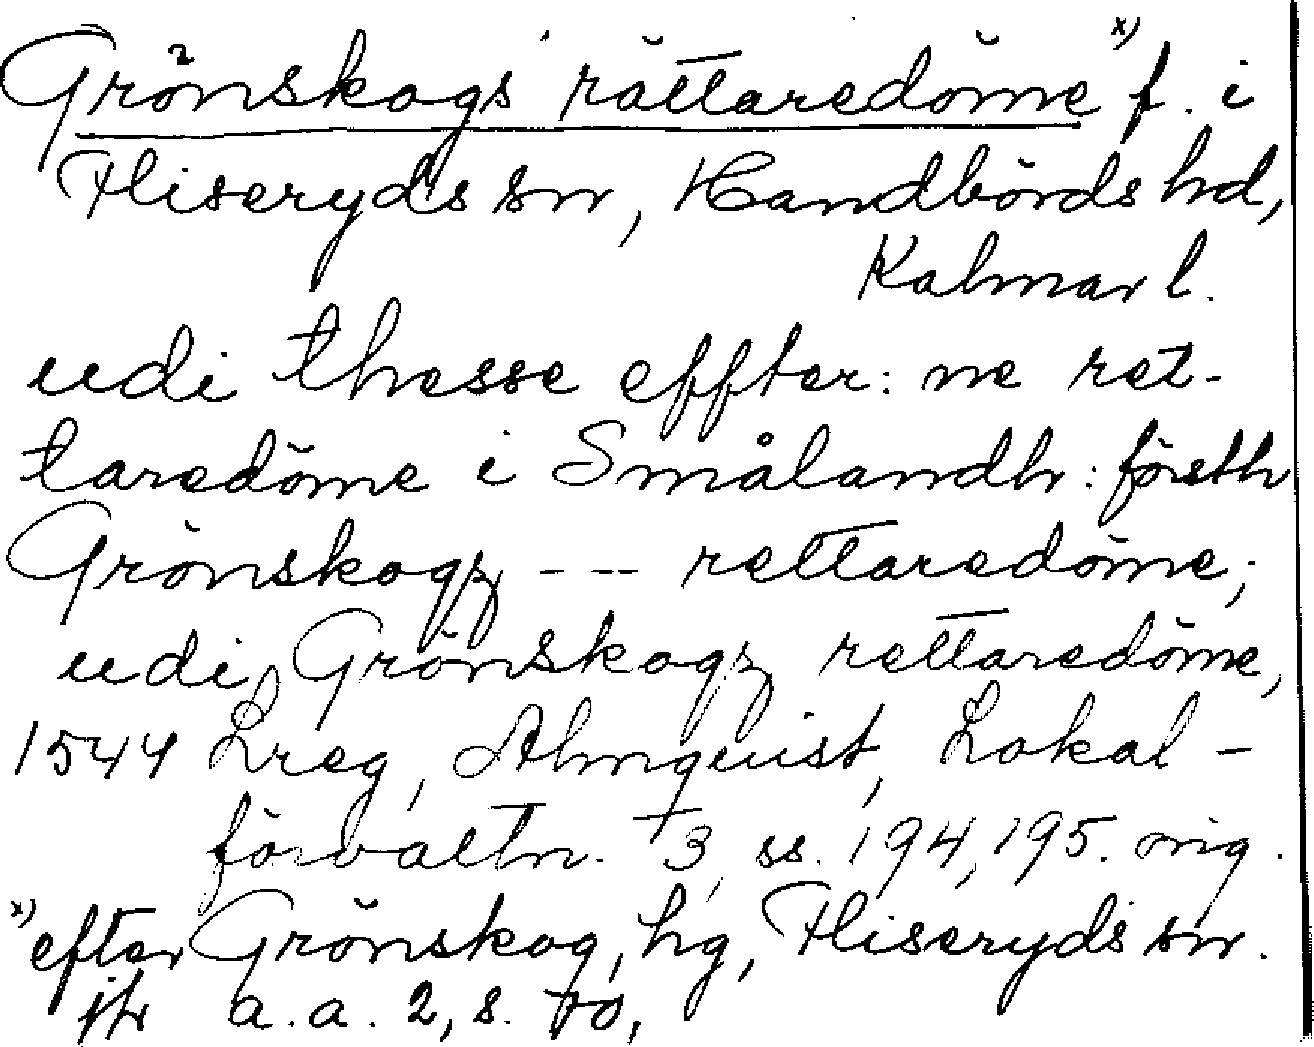 Grönskogs rättaredöme x) f. i
Fliseryds sn, Handbörds hd,
Kalmar l.
udi thesse effter: ne ret-
taredöme i Smålandh: försth
Grönskogz --- rettaredöme;
udi Grönskogz rettaredöme,
1544 Lreg, Almquist, Lokal-
förvaltn. 3, ss. 194, 195. orig.
x) efter Grönskog, hg, Fliseryds sn.
jfr a.a. 2, s. 70,